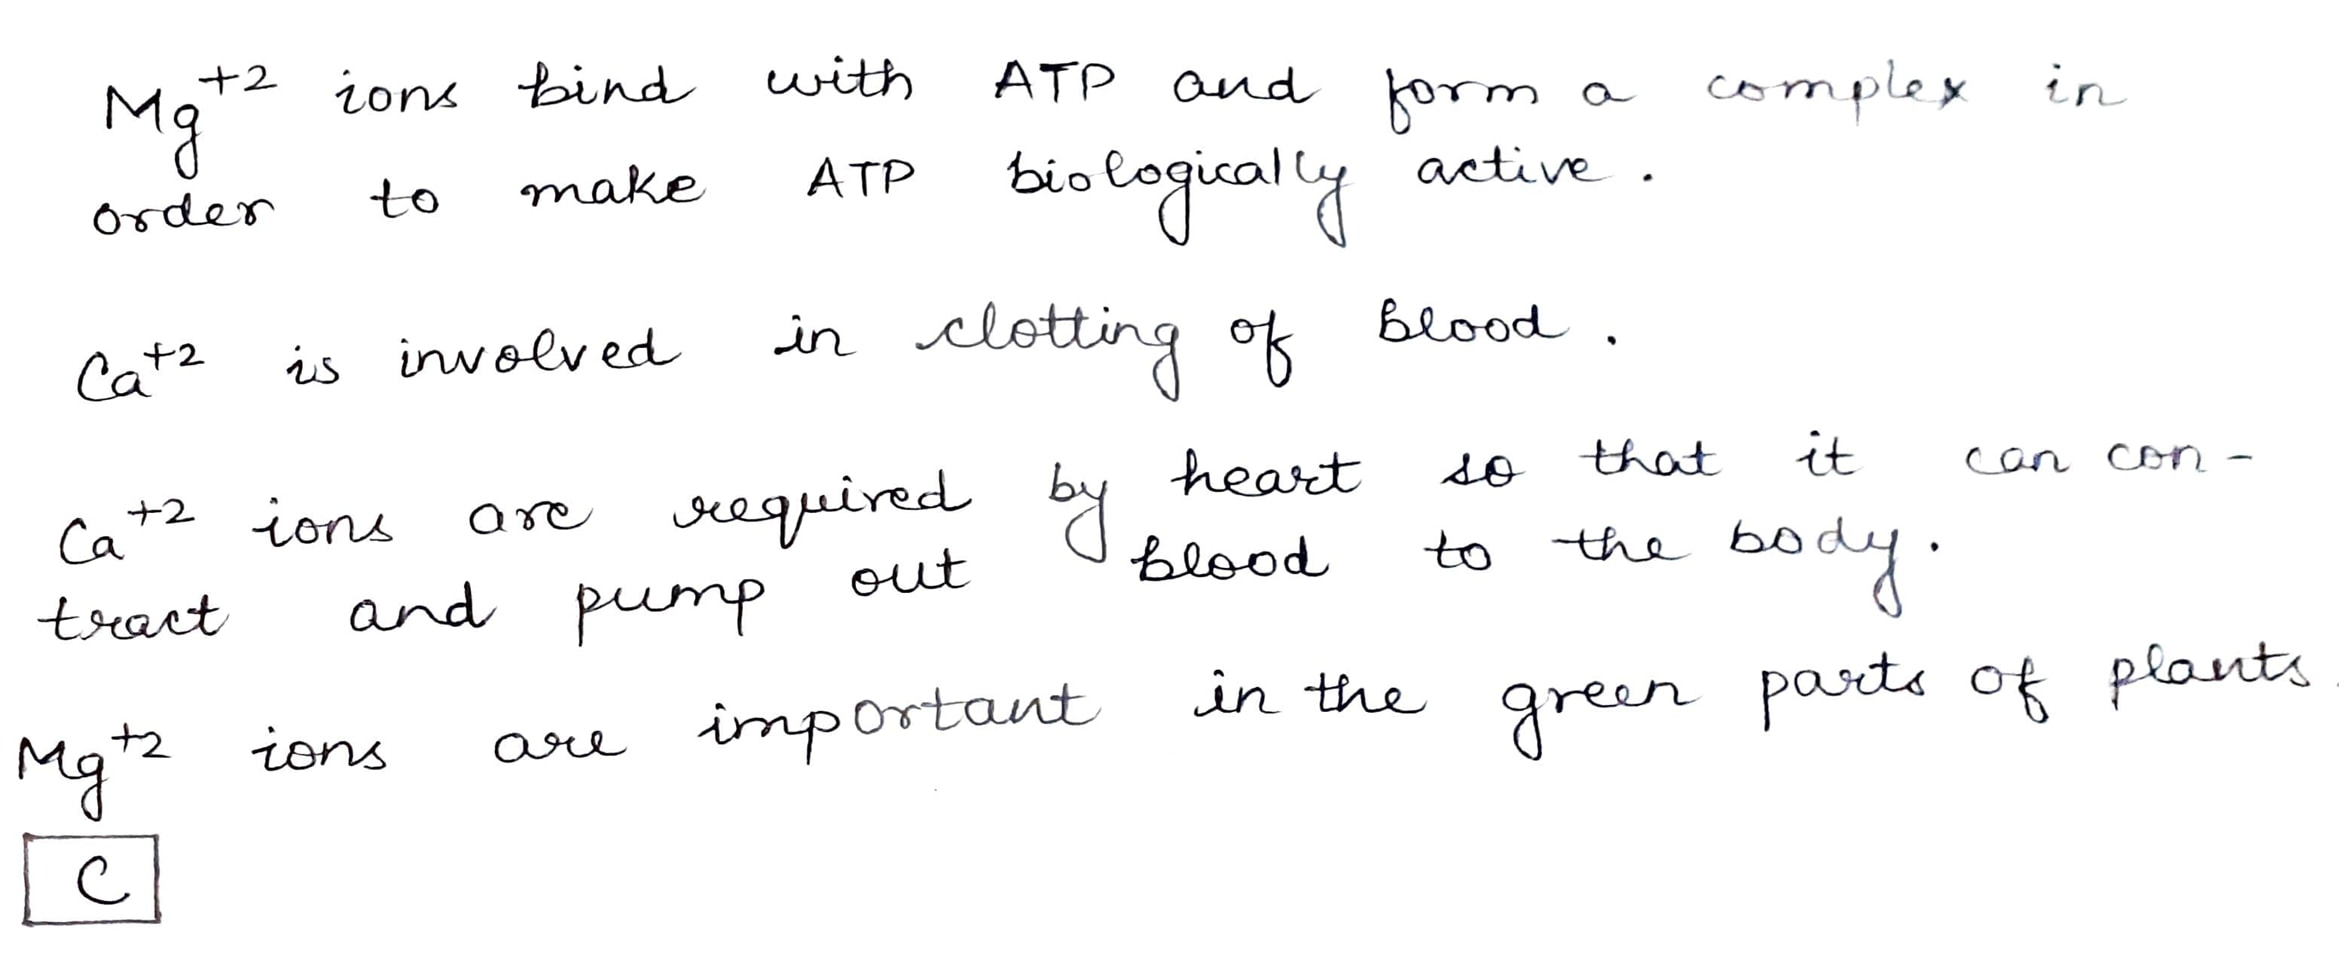 Mg+2 ions bind with ATP and form a complex in
order to make ATP biologically active.
Ca+2 is involved in clotting of blood.
Ca+2 ions are required by heart so that it can con-
tract and pump out blood to the body.
Mg+2 ions are important in the green parts of plants.
C